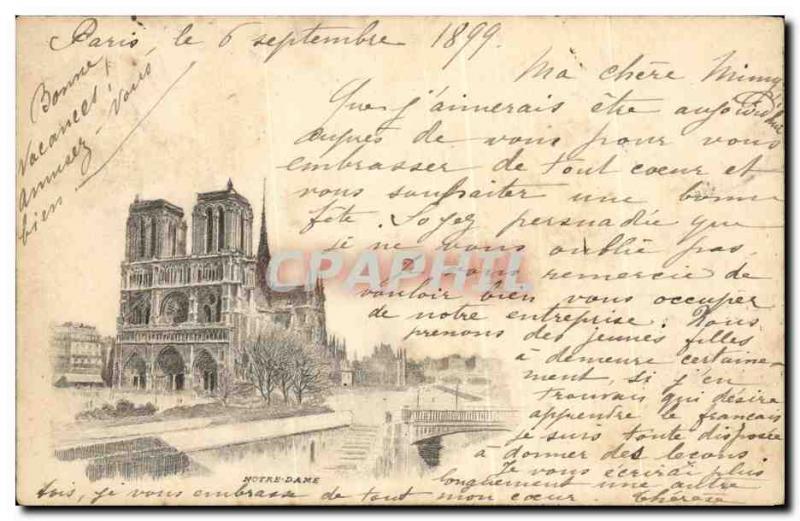 Paris, le 6 septembre 1899.
Ma chère Mimy
Que j'aimerais être aujourd'hui
auprès de vous pour vous
embrasser de tout coeur et
vous souhaiter une bonne
fête. Soyez persuadée que
je ne vous oublie pas.
Je vous remercie de
vouloir bien vous occuper
de notre entreprise. Nous
prenons des jeunes filles
à demeure certaine-
ment, si j'en
trouvais qui désire
apprendre le français
je suis toute disposée
à donner des leçons
Je vous écrirai plus
longuement une autre
fois, je vous embrasse de tout mon coeur. Thérèse
Bonne
Vacances!
Amusez-vous
bien.
CPAPHIL
NOTRE-DAME